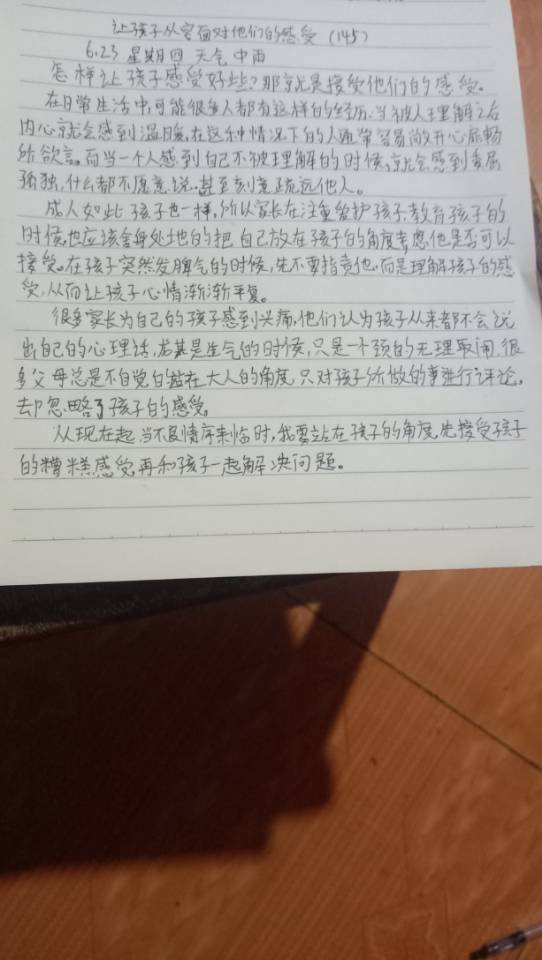 让孩子从容面对他们的感受(145)
6.23 星期四 天气 中雨
怎样让孩子感受好些?那就是接受他们的感受。
在日常生活中,可能很多人都有这样的经历,当被人理解之后
内心就会感到温暖,在这种情况下的人通常容易敞开心扉畅
所欲言。而当一个人感到自己不被理解的时候,就会感到委屈
孤独,什么都不愿意说,甚至刻意疏远他人。
成人如此孩子也一样,所以家长在注重爱护孩子,教育孩子的
时候,也应该设身处地的把自己放在孩子的角度考虑,他是否可以
接受。在孩子突然发脾气的时候,先不要指责他,而是理解孩子的感
受,从而让孩子心情渐渐平复。
很多家长为自己的孩子感到头痛,他们认为孩子从来都不会说
出自己的心理话,尤其是生气的时候,只是一个颈的无理取闹,很
多父母总是不自觉的站在大人的角度,只对孩子所做的事进行评论,
却忽略了孩子的感受。
从现在起,当不良情绪来临时,我要站在孩子的角度,先接受孩子
的糟糕感受,再和孩子一起解决问题。